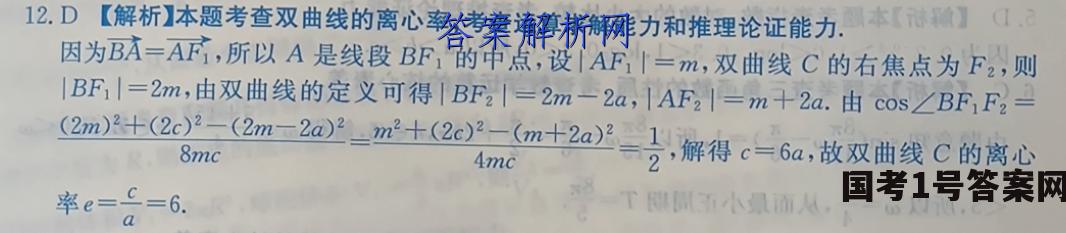 12. D 【解析】本题考查双曲线的离心率,考查运算求解能力和推理论证能力.
答案解析网
因为$\overrightarrow{BA}=\overrightarrow{AF_1}$,所以 A 是线段 $BF_1$ 的中点,设$|AF_1|=m$,双曲线 C 的右焦点为 $F_2$,则
$|BF_1|=2m$,由双曲线的定义可得$|BF_2|=2m-2a$,$|AF_2|=m+2a$. 由 $\cos\angle BF_1F_2=$
$\frac{(2m)^2+(2c)^2-(2m-2a)^2}{8mc}=\frac{m^2+(2c)^2-(m+2a)^2}{4mc}=\frac{1}{2}$,解得 $c=6a$,故双曲线 C 的离心
率 $e=\frac{c}{a}=6$.
国考1号答案网